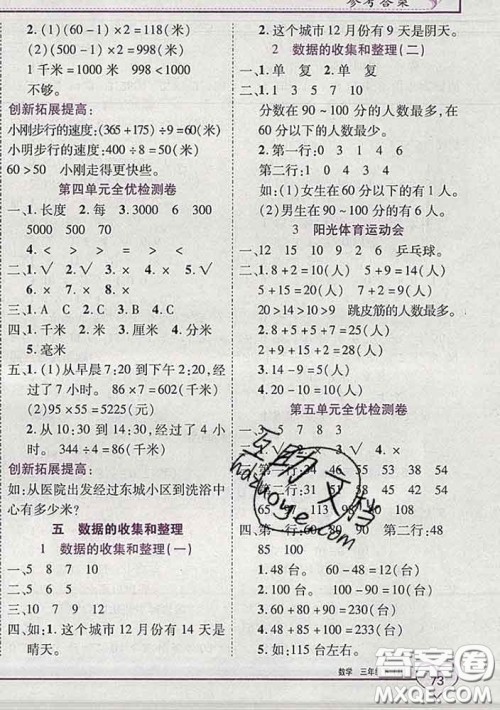 参考答案
2.(1)(60-1)×2=118(米)
(2)(500-1)×2=998(米)
1千米=1000米 998<1000
不够。
创新拓展提高:
小刚步行的速度:(365+175)÷9=60(米)
小明步行的速度:400÷8=50(米)
60>50 小刚走得更快些。
第四单元全优检测卷
一、1.长度 2.每 3.3000 6 8
5000 500 70
4.< > < > = <
二、1.√ 2.× 3.× 4.× 5.√
三、1.A C 2.B 3.C 4.C
四、1.千米 2.米 3.厘米 4.分米
5.毫米
五、1.(1)从早晨7:20到下午2:20,经
过了7小时。 86×7=602(千米)
(2)95×55=5225(米)
2.从10:30到14:30,经过了4小
时。 344÷4=86(千米)
创新拓展提高:
如:从医院出发经过东城小区到洗浴中
心有多少米?
五 数据的收集和整理
1 数据的收集和整理(一)
一、5 8 7 10
二、5 6 5
三、10 7 9 12
四、如:1.这个城市12月份有14天是
晴天。
2.这个城市12月份有9天是阴天。
2 数据的收集和整理(二)
一、1.单 复 2.单 复
二、1.1 3 5 7 10
分数在90~100分的人数最多,在
60分以下的人数最少。
2.第一行:0 1 3 4 6
第二行:1 0 4 3 4
如:(1)女生在60分以下的有1人。
(2)男生在90~100分的有4人。
3 阳光体育运动会
一、14 15 7 6 12 乒乓球。
二、1.8+2=10(人) 5+12=17(人)
5+15=20(人) 7+14=21(人)
20>17>14>10 跳皮筋的人数最多。
2.10+20=30(人)
3.8+17=25(人)
4.20-10=10(人)
第五单元全优检测卷
一、3 5 7 8 3
二、1.√ 2.√ 3.√ 4.×
三、第一行: 34 46 55 53 54
第二行: 113 98 108
四、第一行: 82 100 90 第二行:48
85 100
五、1.48台。 58-48=10(台)
2.100台。 100-90=10(台)
3.50+82+100=232(台)
48+85+100=233(台)
232<233
4.90+60+80=230(台)
5.如:115台左右。
互助文档
huzuoye.com
数学 三年级
73
答案圈
MXQE.COM